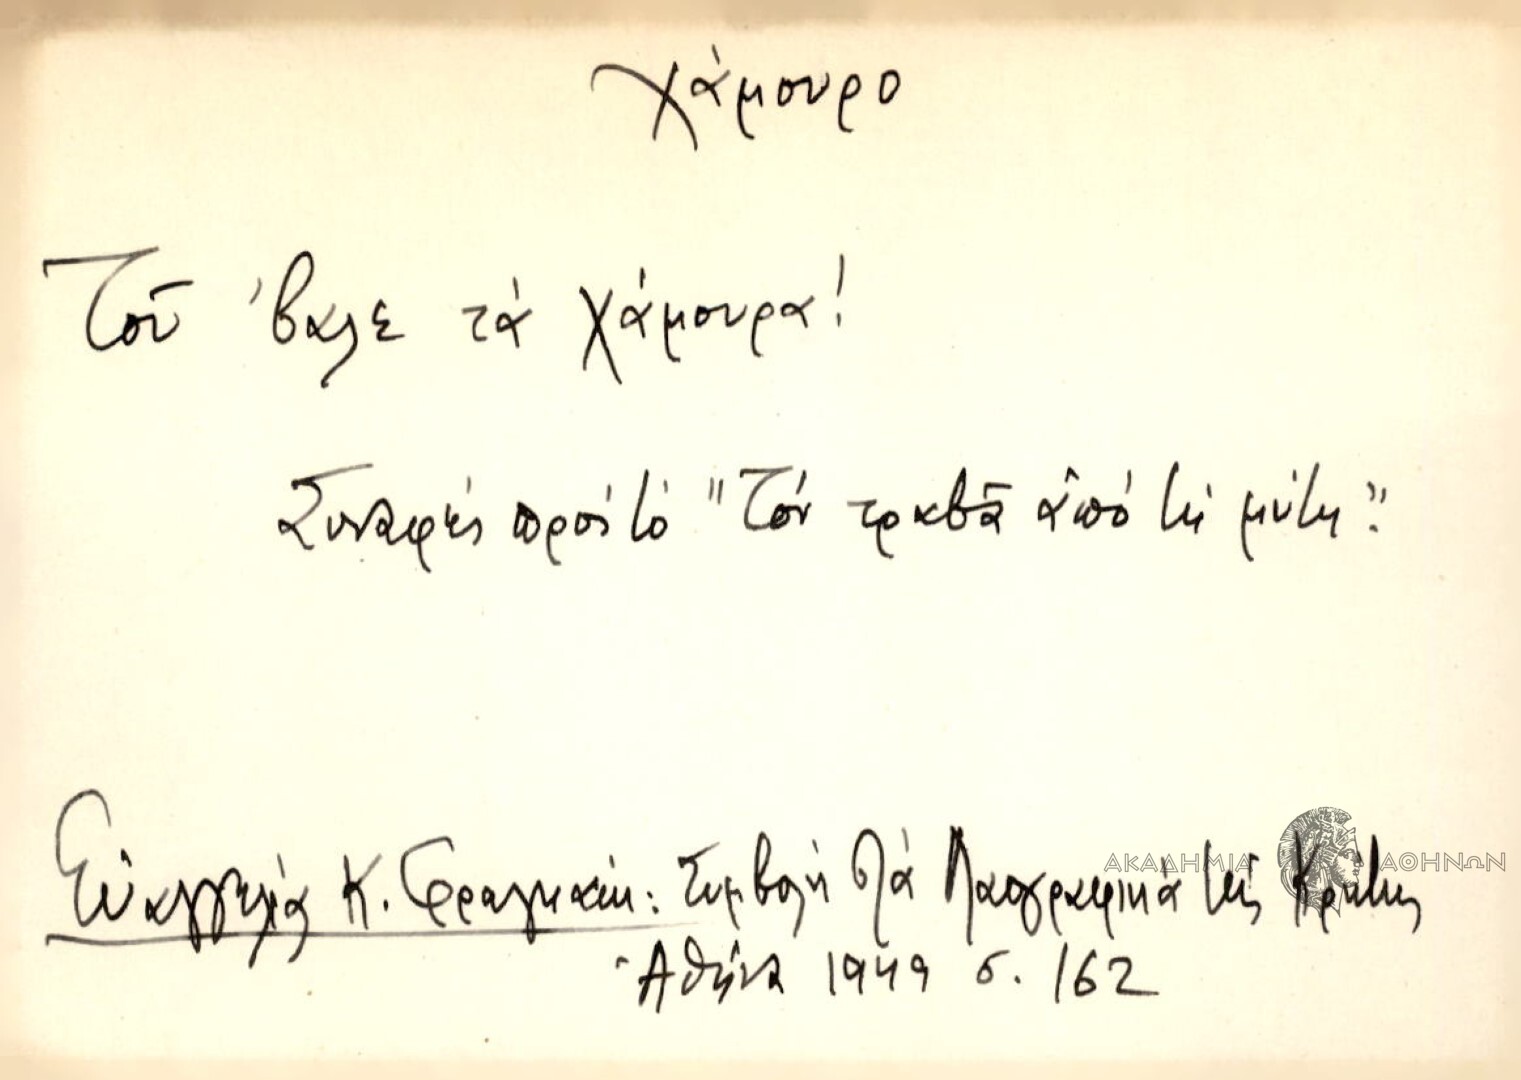 χάμουρο
Τοῦ 'βαλε τά χάμουρα!
Συναφές πρός τό "Τόν τραβᾶ ἀπό τή μύτη".
Εὐαγγελία Κ. Φραγκάκι: Συμβολή στά Λαογραφικά τῆς Κρήτης
Ἀθήνα 1949 σ. 162
ΑΚΑΔΗΜΙΑ ΑΘΗΝΩΝ